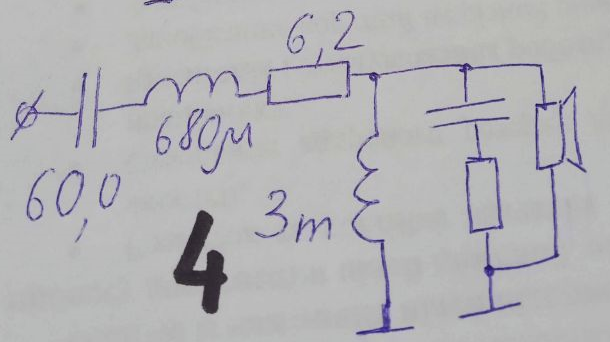 6,2
680μ
60,0
3m
4